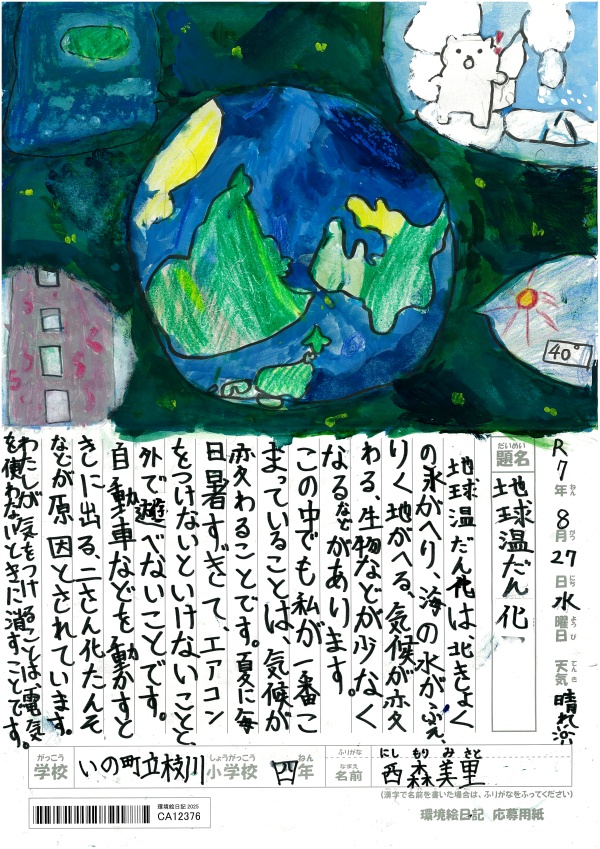 40°
R7年8月27日水曜日 天気晴れ
ねん
がつ
にち
ようび
てんき
だいめい
題名
地球温だん化
地球温だん化は、北きょく
の氷がへり、海の水がふえ、
りく地がへる、気候が変
わる、生物などが少なく
なるなどがあります。
この中でも私が一番こ
まっていることは、気候が
変わることです。夏に毎
日暑すぎて、エアコン
をつけないといけないことと、
外で遊べないことです。
自動車などを動かすと
きに出る、二さん化たんそ
などが原因とされています。
わたしが気をつけることは、電気
を使わないときに消すことです。
がっこう
学校
いの町立枝川
しょうがっこう
小学校
四
ねん
年
ふりがな
なまえ
名前
にしもりみさと
西森美里
(漢字で名前を書いた場合は、ふりがなをふってください)
環境絵日記 2025
CA12376
環境絵日記 応募用紙